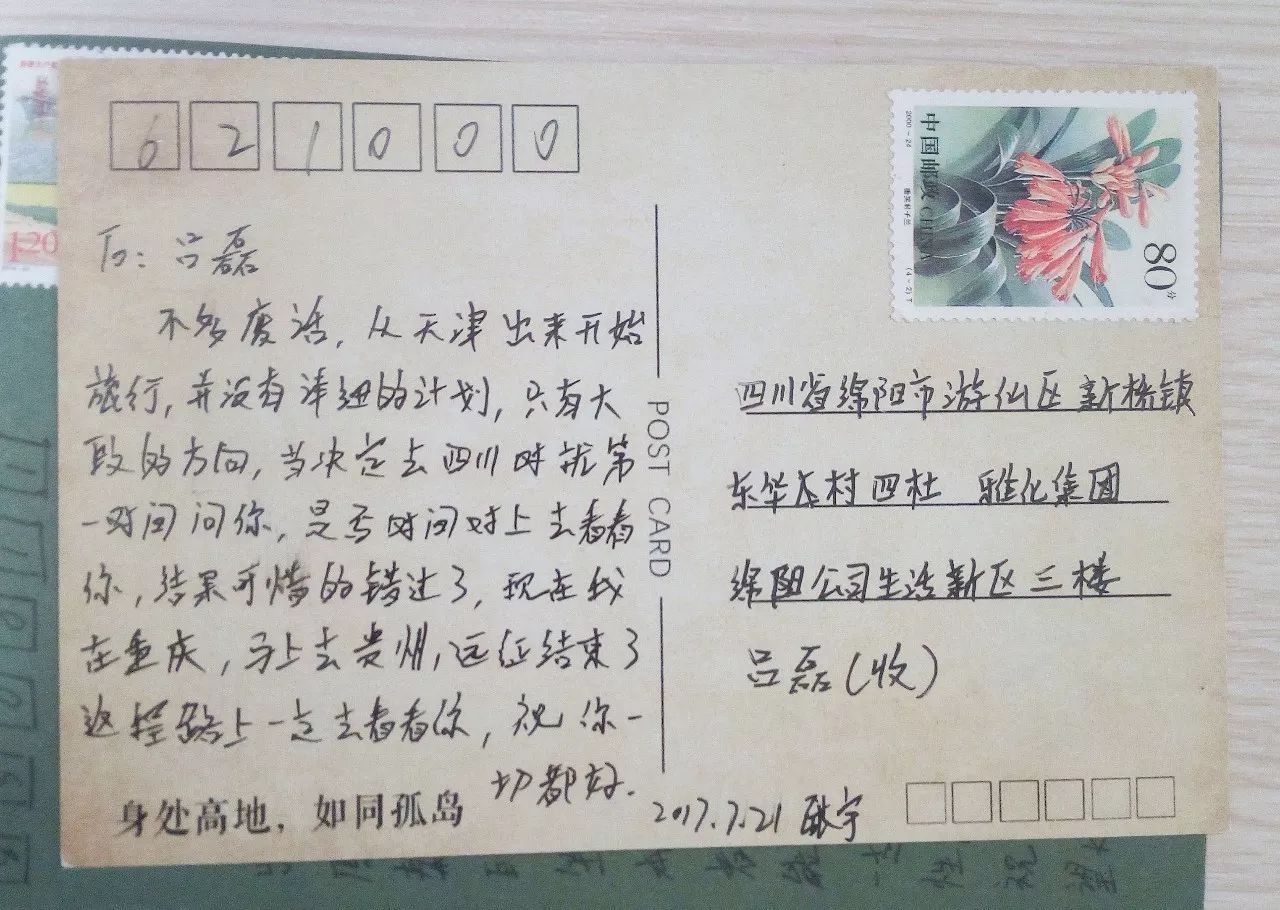 621000
To: 吕磊
不多废话, 从天津出来开始
旅行, 并没有详细的计划, 只有大
致的方向, 当决定去四川时就第
一时间问你, 是否时间对上去看看
你, 结果可惜的错过了, 现在我
在重庆, 马上去贵州, 远征结束了
返程路上一定去看看你, 祝你一
切都好.
身处高地，如同孤岛
2017.7.21 耿宇
POST CARD
中国邮政 CHINA
2000-24
垂笑君子兰
(4-2)T
80分
四川省绵阳市游仙区新桥镇
东华村四社 雅化集团
绵阳公司生活新区三楼
吕磊(收)
120